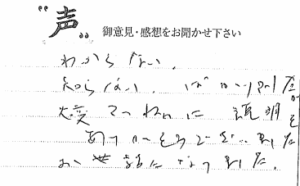 "声" 御意見・感想をお聞かせ下さい
わからない、
知らない、ばかりの私だが
大変ていねいに説明を
ありがとうございました
お世話になりました。